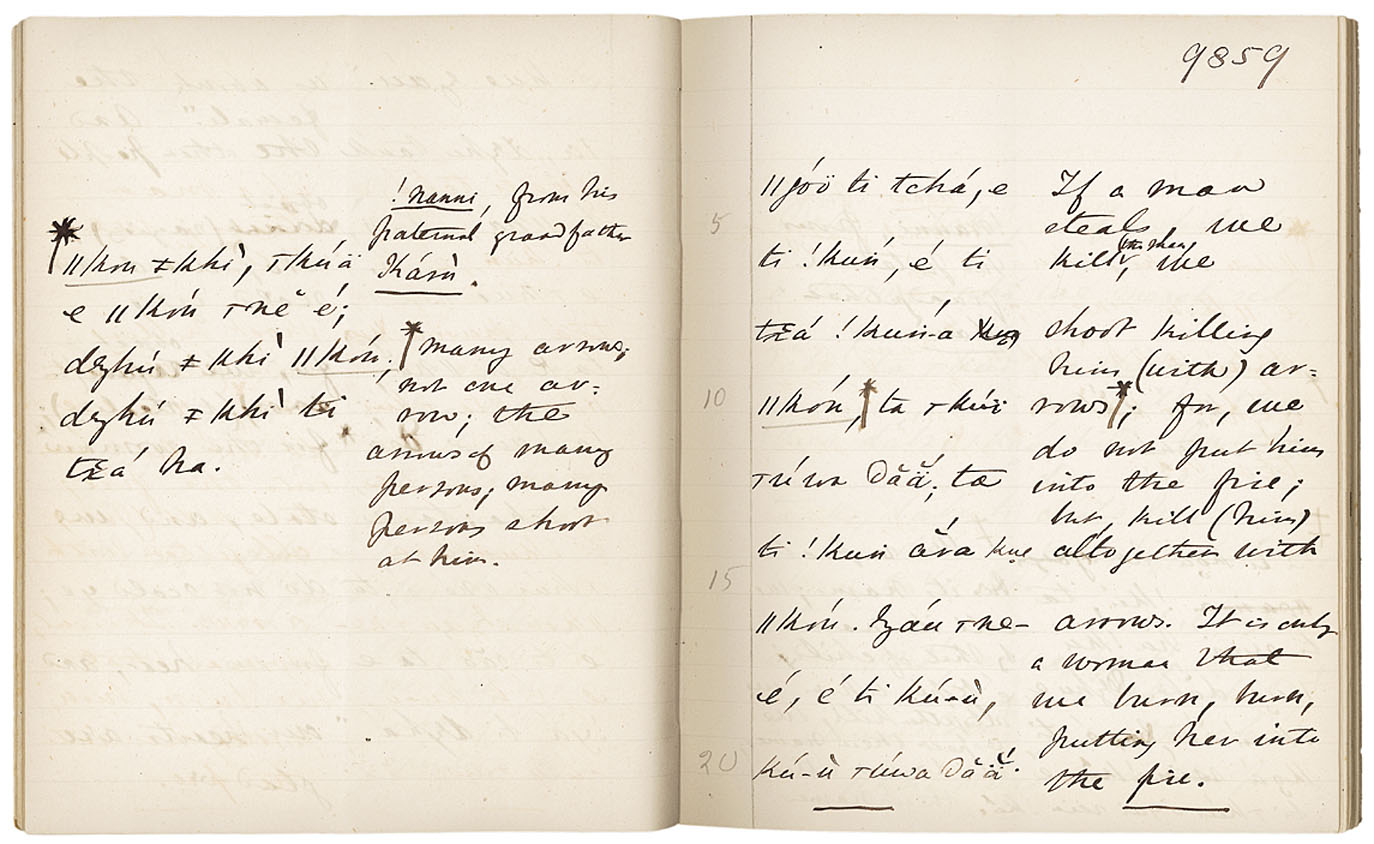 !nanni, from his
paternal grandfather
Karu.
ǁkon ǂkhì, ɤkúä
e ǁkóń ɤnĕ é;
dzhú ǂkhì ǁkóń;
dzhú ǂkhì ti
txá ha.
many arrows;
not one ar-
row; the
arrows of many
persons; many
persons shoot
at him.
9859
5
10
15
20
ti tchá, e
ti !kuń, é ti
txá !kuń-a
ǁkóń, ta
ta
ti !kuń ára kue
ǁkóń.
é, é ti kú-ù,
kú-ù
If a man
steals, we
kill, we
shoot killing
him (with) ar-
rows; for, we
do not put him
into the fire;
but, kill (him)
altogether with
arrows. It is only
a woman that
we burn, burn,
putting her into
the fire.